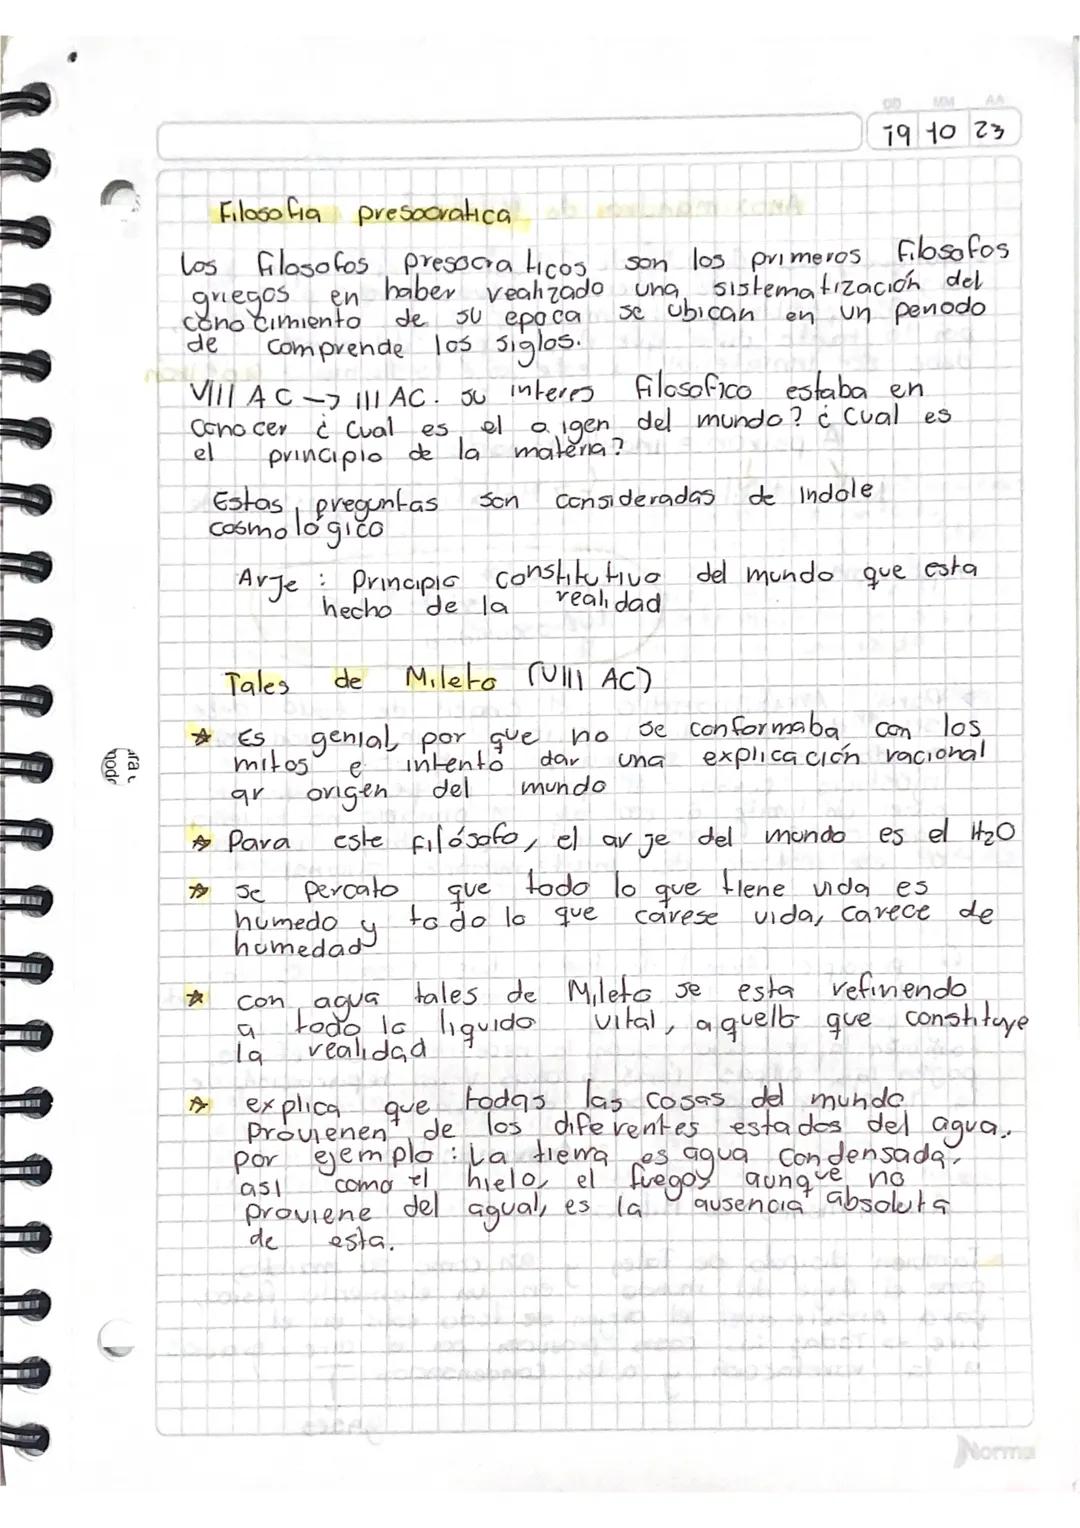 DD MM AA
19 10 23
Filosofia presocratica
los filosofos presocraticos son los primeros filosofos
griegos en haber realizado una sistematización del
conocimiento de su epoca se ubican en un periodo
de comprende los siglos.
VIII AC → III AC. su interes filosofico estaba en
conocer ¿ Cual es el origen del mundo? ¿ Cual es
el principio de la materia?
Estas preguntas son consideradas de Indole
cosmológico
Arje : Principio constitutivo del mundo que esta
hecho de la realidad
Tales de Mileto (VIII AC)
☆ Es genial por que no se conformaba con los
mitos e intento dar una explicación racional
ar origen del mundo
☆ Para este filósofo, el arje del mundo es el H2O
☆ se percato que todo lo que tiene vida es
humedo y todo lo que carese vida, carece de
humedad
☆ con agua tales de Mileto se esta refiriendo
a todo lo liquido vital, aquello que constituye
la realidad
☆ explica que todas las cosas del mundo
provienen de los diferentes estados del agua.
por ejemplo: La tierra es agua condensada,
asi como el hielo, el fuego, aunque no
proviene del agual, es la ausencia absoluta
de esta.
Norma